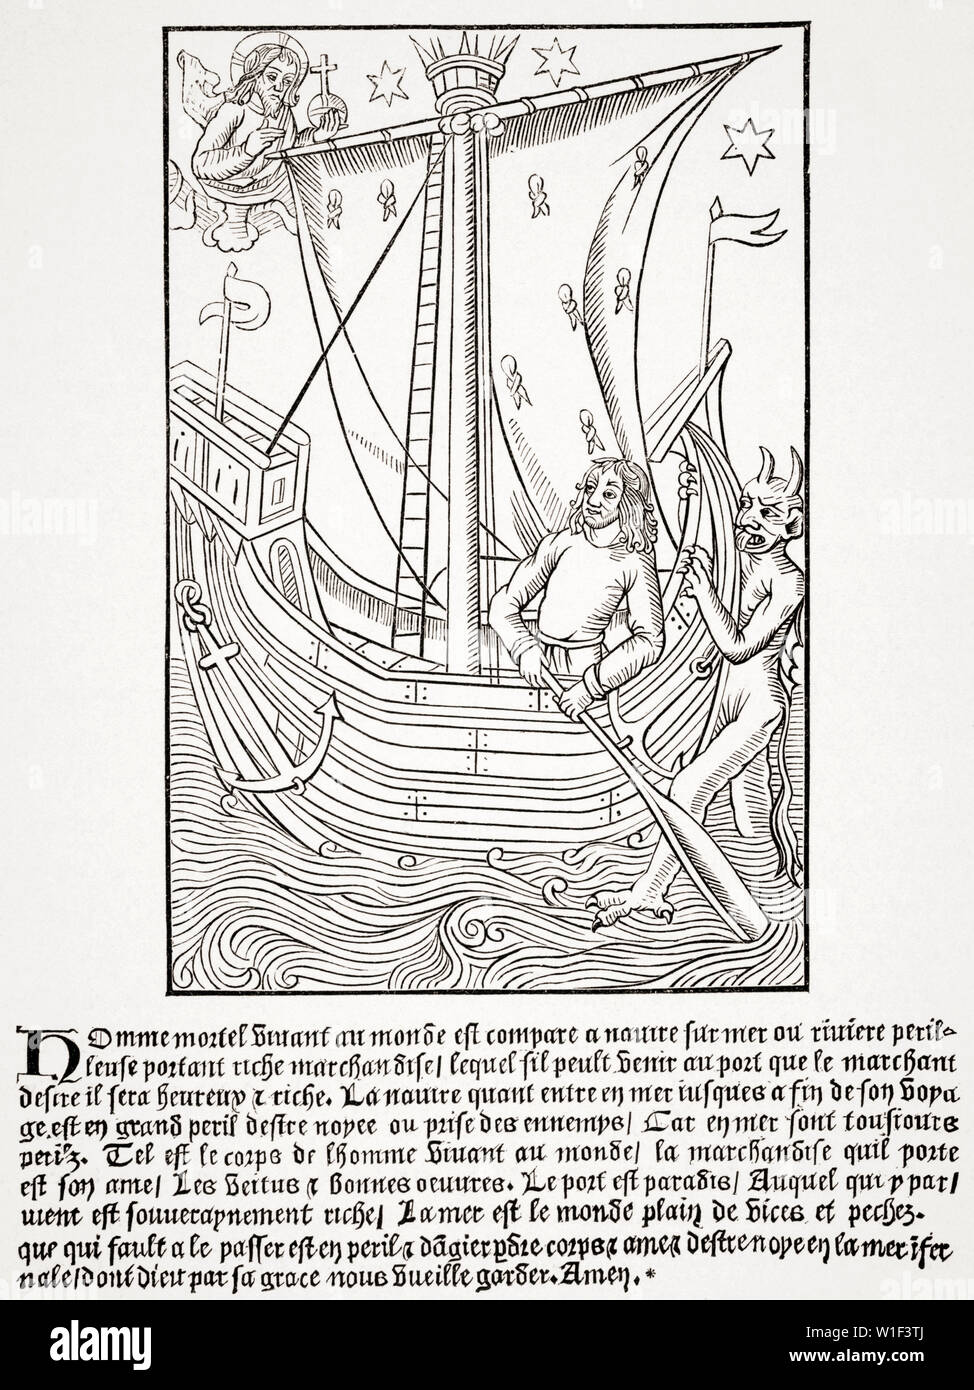 HOmme mortel vivant au monde est compare a navire sur mer ou riviere peril-
leuse portant riche marchandise/ lequel sil peult venir au port que le marchant
desire il sera heureux & riche. La navire quant entre en mer iusques a fin de son voya
ge.est en grand peril destre noyee ou prise des ennemys/ Car en mer sont tousiours
perilz. Tel est le corps de lhomme vivant au monde/ la marchandise quil porte
est son ame/ Les vertus & bonnes oeuvres. Le port est paradis/ Auquel qui y par/
vient est souveraynement riche/ La mer est le monde plain de vices et pechez.
que qui fault a le passer est en peril & dãgier pdre corps & ame & destre noye en la mer ĩfer
nale/ dont dieu par sa grace nous vueille garder. Amen. *
alamy
Image ID: W1F3TJ
www.alamy.com